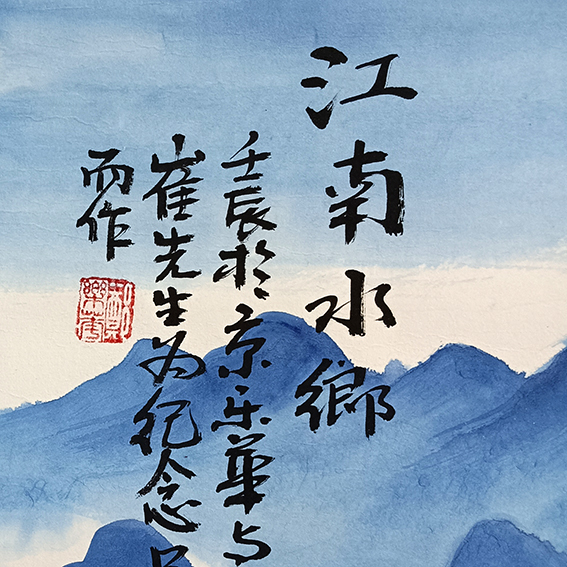 江南水鄉
壬辰於京乐華与
崔先生为纪念
而作